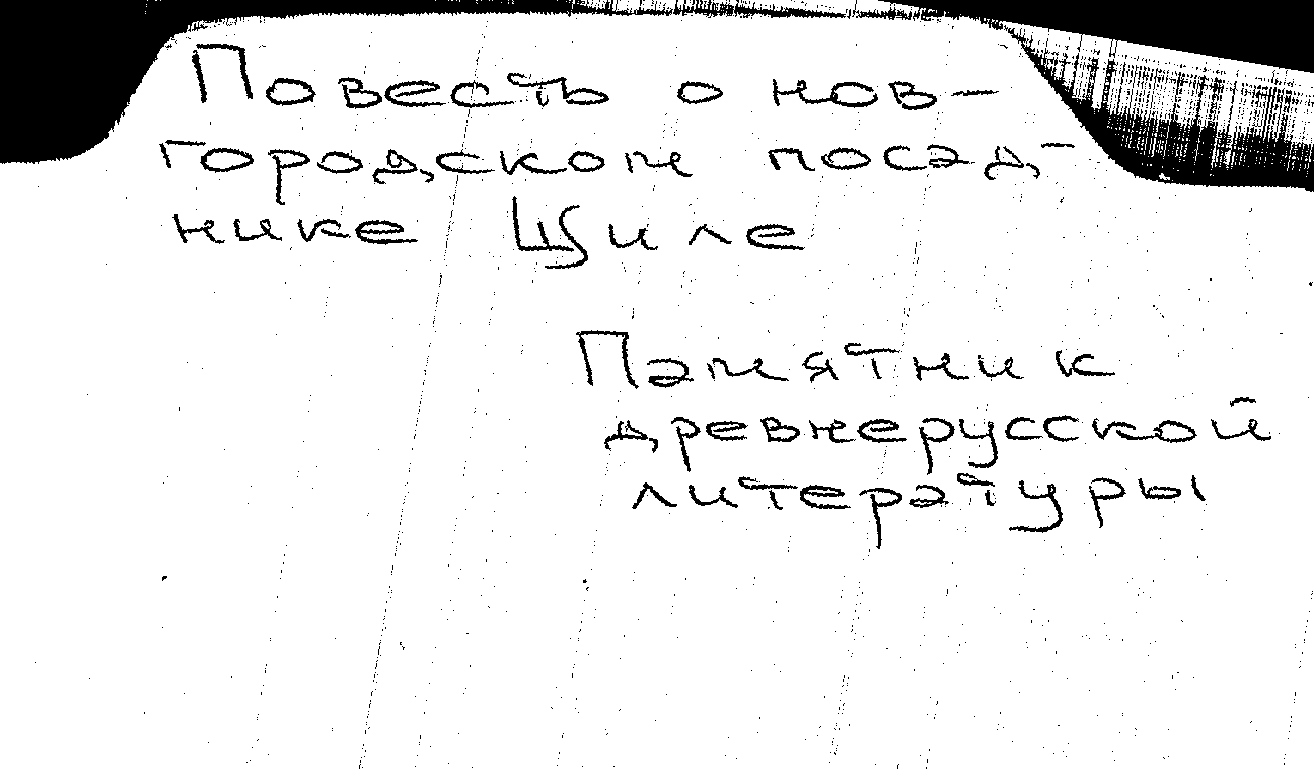 Повесть о нов-
городском посад-
нике Щиле
Памятник
древнерусской
литературы